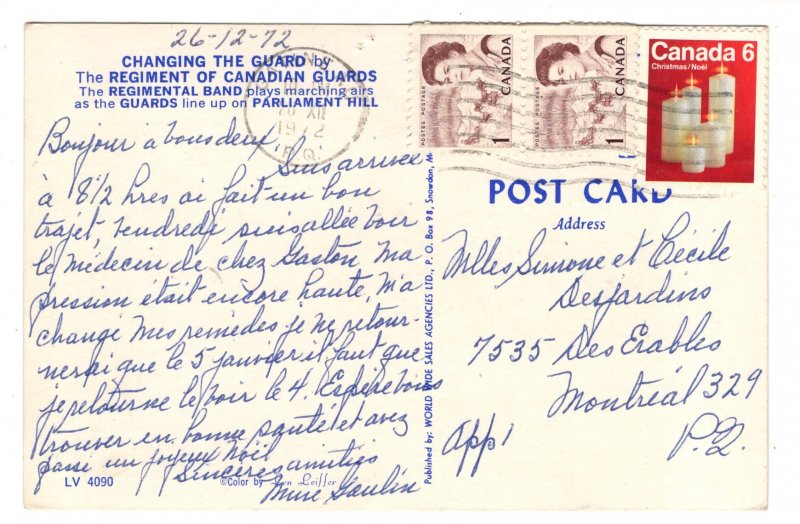 26-12-72
CHANGING THE GUARD by
The REGIMENT OF CANADIAN GUARDS
The REGIMENTAL BAND plays marching airs
as the GUARDS line up on PARLIAMENT HILL
Bonjour à vous deux
Suis arrivée
à 8 1/2 hres ai fait un bon
trajet, vendredi suis allée voir
le Médecin de chez Gaston. Ma
pression était encore haute, m'a
changé mes remèdes je ne retour-
nerai que le 5 janvier il faut que
je retourne le voir le 4. Espère vous
trouver en bonne santé et avez
passé un joyeux Noël
Sincères amitiés
Mme Goulin
LV 4090
©Color by Len Leiffer
Published by: WORLD WIDE SALES AGENCIES LTD., P. O. Box 98, Snowdon, M
XII
1972
P.Q.
POSTES POSTAGE
CANADA
1
POSTES POSTAGE
CANADA
1
Canada 6
Christmas/Noël
POST CARD
Address
Mlles Simone et Cécile
Desjardins
7535 Des Erables
Montréal 329
App 1
P.Q.